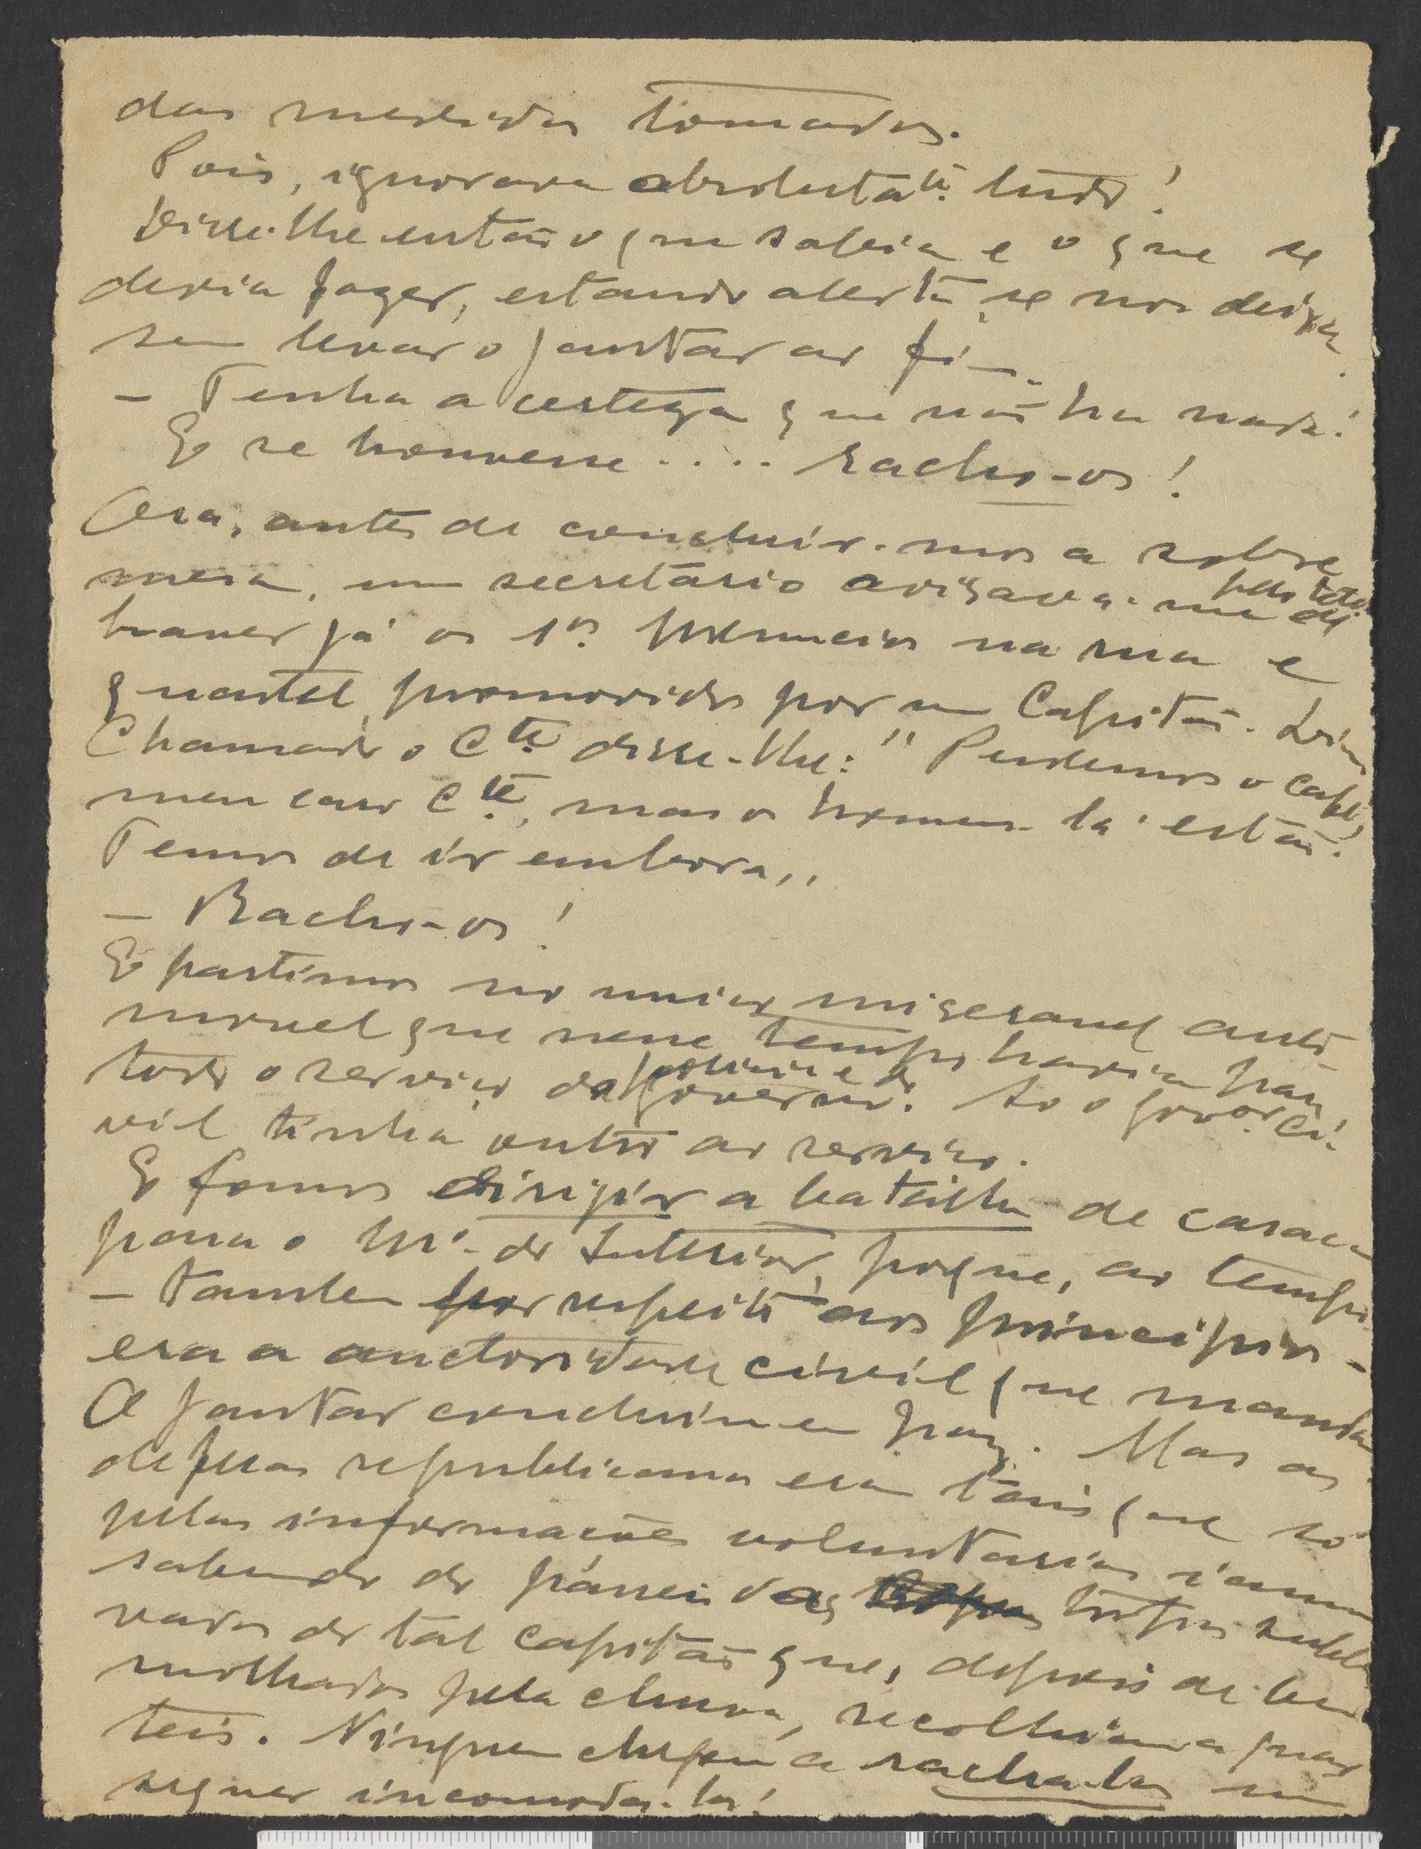 das medidas tomadas.
Pois, ignorava absolutate. tudo!
Disse-lhe então o que sabia e o que se
devia fazer, estando alerta, se nos deixas
sem levar o jantar ao fim.
— Tenha a certeza que não ha nada!
E se houvesse.... racho-os!
Ora, antes de concluir-mos a sobre
mesa, um secretário avisava-me de
haver já os 1os. prenuncios na rua e
quartel, promovidos por um Capitão.
Chamado o Cte disse-lhe: "Perdemos o café,
meu caro Cte, mas os homens lá estão.
Temos de ir embora,,
— Racho-os!
E partimos no unico miseravel auto
movel que nesse tempo havia para
todo o serviço da policia e do governo. Só o govor. ci-
vil tinha outro ao serviço.
E fomos dirigir a batalha de casaca
para o Mo. do Interior, porque, ao tempo
— tambem por respeito aos principios —
era a auctoridade civil que mandava
O jantar concluiu em paz. Mas as
defesas republicanas eram tais que só
pelas informações voluntarias iamos
sabendo do passeio das tropas suble
vadas do tal capitão que, depois de bem
molhados pela chuva, recolhiam a quar
teis. Ninguem chegou a racha-los nem
sequer incomoda-los!